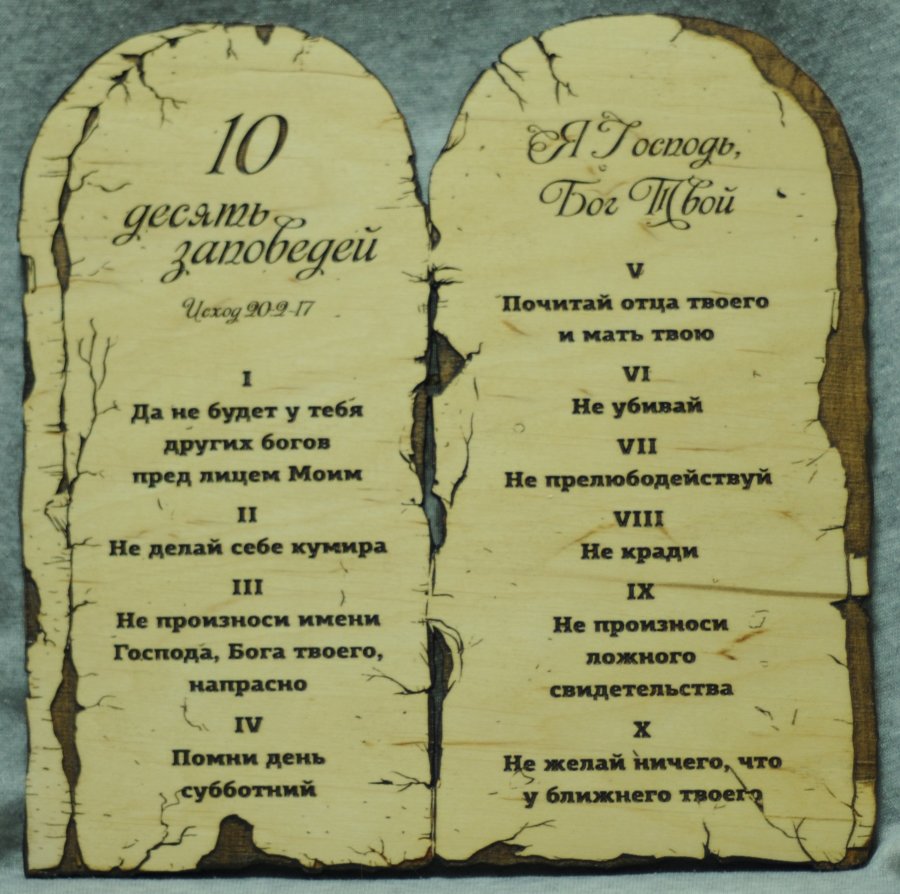 10
десять
заповедей
Исход 20:2-17
I
Да не будет у тебя
других богов
пред лицем Моим
II
Не делай себе кумира
III
Не произноси имени
Господа, Бога твоего,
напрасно
IV
Помни день
субботний
Я Господь,
Бог Твой
V
Почитай отца твоего
и мать твою
VI
Не убивай
VII
Не прелюбодействуй
VIII
Не кради
IX
Не произноси
ложного
свидетельства
X
Не желай ничего, что
у ближнего твоего